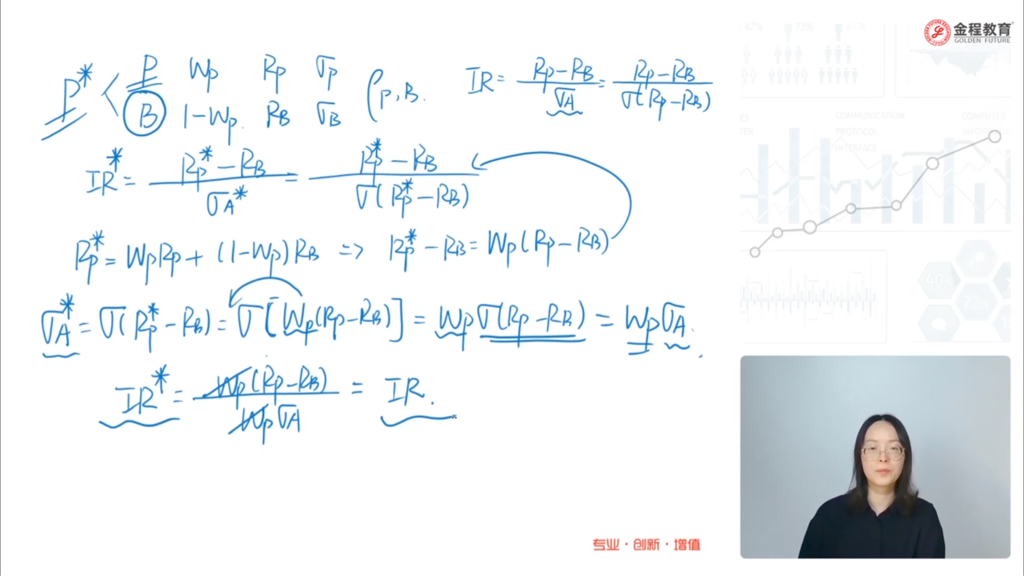 金程教育
GOLDEN FUTURE
P* < P Wp Rp σp
B 1-Wp RB σB
ρp,B.
IR = (Rp-RB)/σA = (Rp-RB)/σ(Rp-RB)
IR* = (Rp*-RB)/σA* = (Rp*-RB)/σ(Rp*-RB)
Rp* = WpRp + (1-Wp)RB => Rp*-RB = Wp(Rp-RB)
σA* = σ(Rp*-RB) = σ[Wp(Rp-RB)] = Wpσ(Rp-RB) = WpσA.
IR* = Wp(Rp-RB)/WpσA = IR.
COMMUNICATION
PROTOCOL
INTERFACE
专业·创新·增值